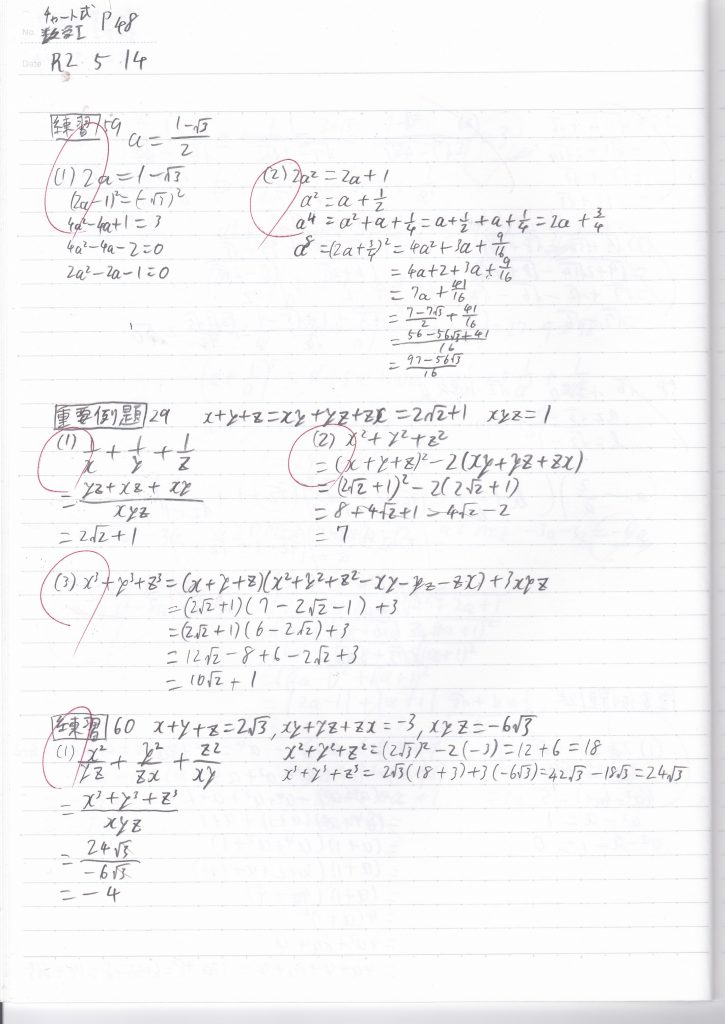 チャート式
数学I P48
No.
Date R2 5 14
練習 59 a = (1-√3)/2
(1) 2a = 1-√3
(2a-1)² = (-√3)²
4a²-4a+1 = 3
4a²-4a-2 = 0
2a²-2a-1 = 0
(2) 2a² = 2a+1
a² = a+1/2
a⁴ = a²+a+1/4 = a+1/2+a+1/4 = 2a+3/4
a⁸ = (2a+3/4)² = 4a²+3a+9/16
= 4a+2+3a+9/16
= 7a+41/16
= (7-7√3)/2+41/16
= (56-56√3+41)/16
= (97-56√3)/16
重要例題 29 x+y+z = xy+yz+zx = 2√2+1 xyz = 1
(1) 1/x + 1/y + 1/z
= (yz+xz+xy)/xyz
= 2√2+1
(2) x²+y²+z²
= (x+y+z)²-2(xy+yz+zx)
= (2√2+1)²-2(2√2+1)
= 8+4√2+1-4√2-2
= 7
(3) x³+y³+z³ = (x+y+z)(x²+y²+z²-xy-yz-zx)+3xyz
= (2√2+1)(7-2√2-1)+3
= (2√2+1)(6-2√2)+3
= 12√2-8+6-2√2+3
= 10√2+1
練習 60 x+y+z = 2√3, xy+yz+zx = -3, xyz = -6√3
(1) x²/yz + y²/zx + z²/xy
= (x³+y³+z³)/xyz
= 24√3/-6√3
= -4
x²+y²+z² = (2√3)²-2(-3) = 12+6 = 18
x³+y³+z³ = 2√3(18+3)+3(-6√3) = 42√3-18√3 = 24√3